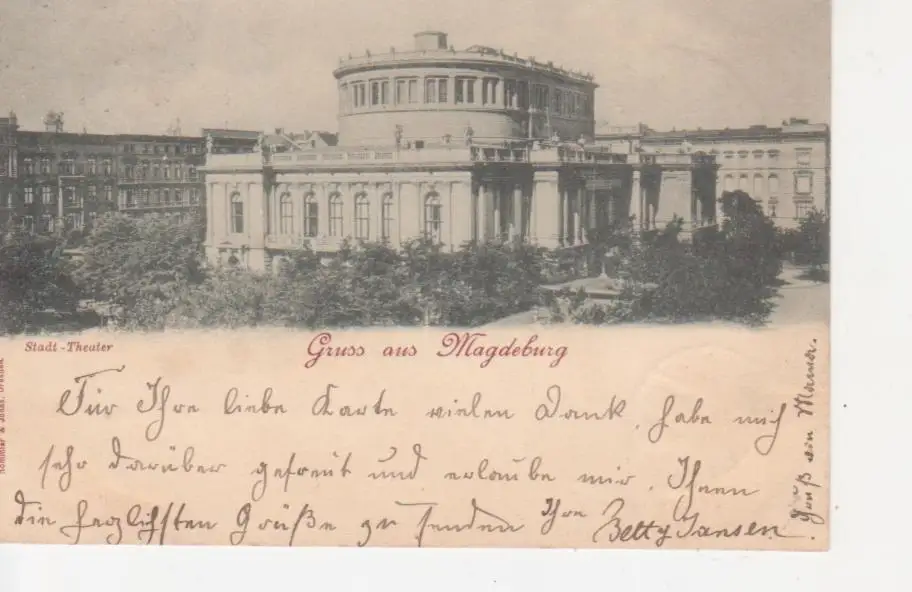 Stadt-Theater
Gruss aus Magdeburg
Für Ihre liebe Karte vielen Dank, habe mich
sehr darüber gefreut und erlaube mir, Ihnen
die herzlichsten Grüße zu senden Ihre Betty Jansen.
Gruß von Mama.
Römmler & Jonas, Dresden